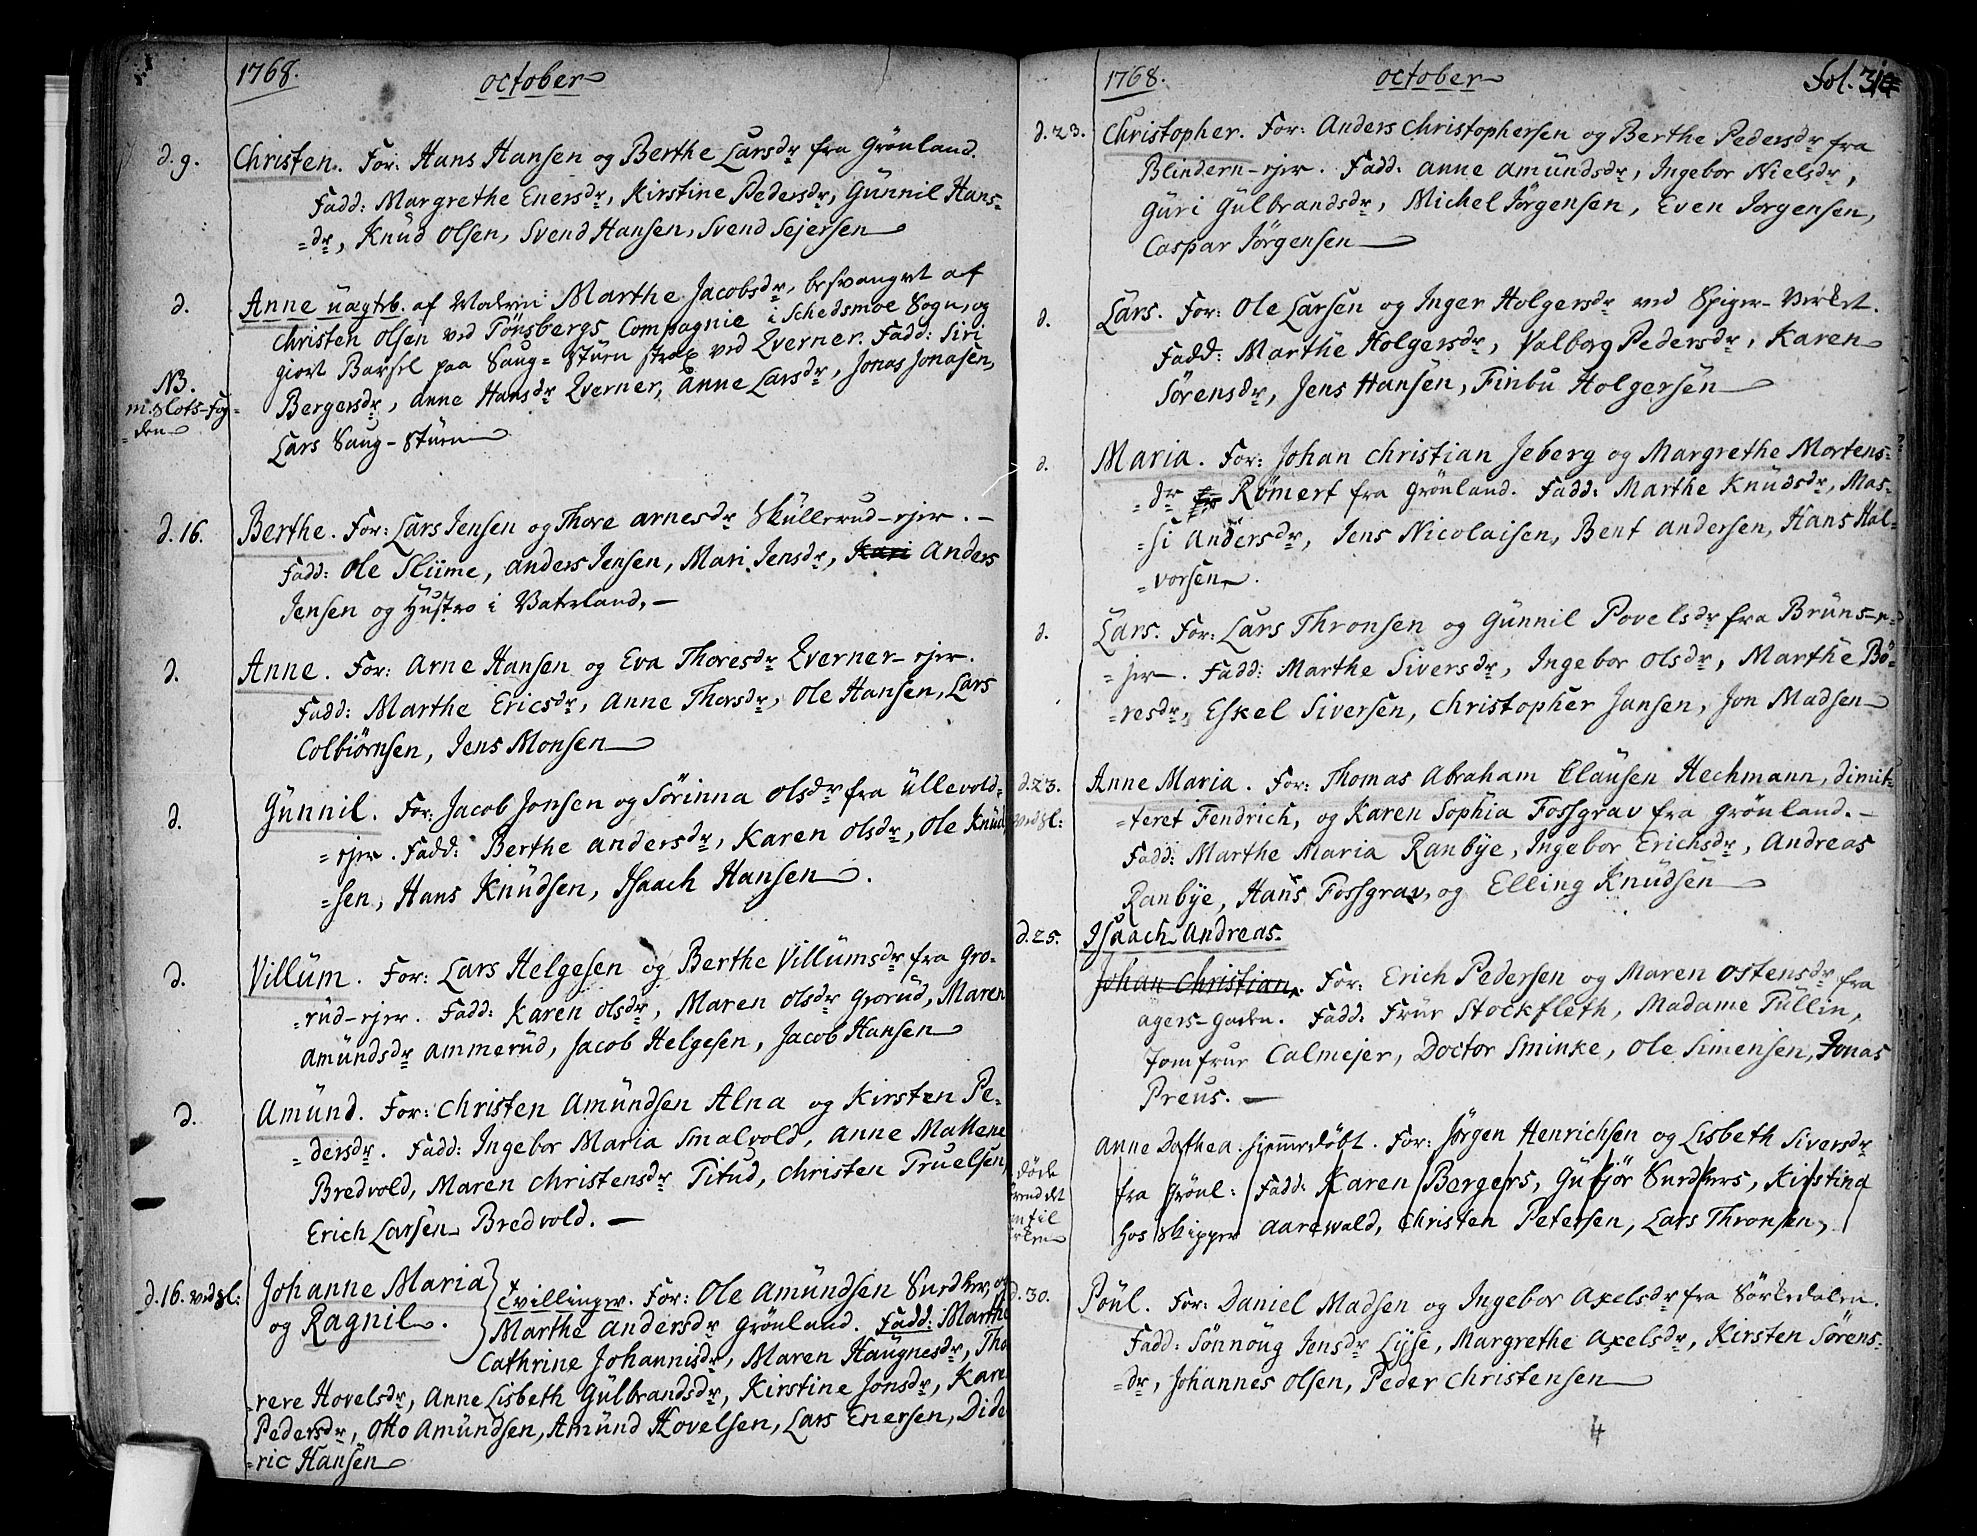 1768. october
d. 9. Christen. For: Hans Hansen og Berthe Larsdr fra Grönland.
Fadd: Margrethe Enersdr, Kirstine Pedersdr, Günnil Hans-
=dr, Knud Olsen, Svend Hansen, Svend Sejersen
d. Anne uægteb. af Moderen Marthe Jacobsdr, besvangret af
Christen Olsen ved Tönsbergs Compagnie i Schedsmoe Sogn, og
giort Barsel paa Saug=Stüen strax ved Qverner. Fadd: Siri
NB. Bergersdr, Anne Hansdr Qverner, Anne Larsdr, Jonas Jonasen,
m. Slots-Fog-
=den Lars Saug-Stüen
d. 16. Berthe. For: Lars Jensen og Thore Arnesdr Skullerud-ejer. -
Fadd: Ole Sliime, Anders Jensen, Mari Jensdr, Kari Anders
Jensen og Hustro i Vaterland. -
d. Anne. For: Arne Hansen og Eva Thoresdr Qverner-ejer.
Fadd: Marthe Ericsdr, Anne Thorsdr, Ole Hansen, Lars
Colbiörnsen, Jens Monsen
d. Günnil. For: Jacob Jonsen og Sörinna Olsdr fra Üllevold-
=ejer. Fadd: Berthe Andersdr, Karen Olsdr, Ole Knüd
=sen, Hans Knüdsen, Isaach Hansen.
d. Villüm. For: Lars Helgesen og Berthe Villümsdr fra Gro-
=rüd-ejer. Fadd: Karen Olsdr, Maren Olsdr Grorüd, Maren
Amündsdr Ammerüd, Jacob Helgesen, Jacob Hansen
d. Amünd. For: Christen Amündsen Alna og Kirsten Pe-
=dersdr. Fadd: Ingebor Maria Smalvold, Anne Malene
Bredvold, Maren Christensdr Titud, Christen Truelsen
Erich Larsen Bredvold. -
d. 16. ved sl: Johanne Maria Tvillinger. For: Ole Amündsen Snedker, og
og Ragnil. Marthe Andersdr Grönland. Fadd: Marthe
Cathrine Johannisdr, Maren Haugnesdr, Tho
=rere Hovelsdr, Anne Lisbeth Gülbrandsdr, Kirstine Jonsdr, Kare
Pedersdr, Otto Amündsen, Amünd Hovelsen, Lars Enersen, Dide
=ric Hansen
1768. october Fol. 314
d. 23. Christopher. For: Anders Christophersen og Berthe Pedersdr fra
Blindern-ejer. Fadd: Anne Amündsdr, Ingebor Nielsdr,
Güri Gülbrandsdr, Michel Jörgensen, Even Jörgensen,
Caspar Jörgensen
d. Lars. For: Ole Larsen og Inger Holgersdr ved Spiger-Verket.
Fadd: Marthe Holgersdr, Valborg Pedersdr, Karen
Sörensdr, Jens Hansen, Finbu Holgersen
d. Maria. For: Johan Christian Jeberg og Margrethe Mortens-
=dr Römert fra Grönland. Fadd: Marthe Knüdsdr, Mas-
=si Andersdr, Jens Nicolaisen, Bent Andersen, Hans Hal-
=vorsen.
d. Lars. For: Lars Thronsen og Günnil Povelsdr fra Brüns-e-
=jer. Fadd: Marthe Siversdr, Ingebor Olsdr, Marthe Bö-
=resdr, Eskel Siversen, Christopher Jansen, Jon Madsen
d. 23. Anne Maria. For: Thomas Abraham Clausen Hechmann, dimit-
ved sl: =teret Fendrich, og Karen Sophia Fossgrav fra Grönland. -
Fadd: Marthe Maria Ranbÿe, Ingebor Erichsdr, Andreas
Ranbÿe, Hans Fossgrav, og Elling Knüdsen
d. 25. Isaach Andreas.
Johan Christian. For: Erich Pedersen og Maren Ostensdr fra
Agers-Gaden. Fadd: Frue Stockfleth, Madame Tüllin,
Jomfrue Calmejer, Doctor Sminke, Ole Simensen, Jonas
Preus. -
Anne Dorthea hiemmedöbt. For: Jörgen Henrichsen og Lisbeth Siversdr
döde fra Grönl: Fadd: Karen Bergers, Gubjör Snedkers, Kirstina
hos Skipper Aarewald, Christen Petersen, Lars Thronsen,
d. 30. Pöul. For: Daniel Madsen og Ingebor Axelsdr fra Sörkedalen.
Fadd: Sönnöug Jensdr Lysse, Margrethe Axelsdr, Kirsten Sörens-
=dr, Johannes Olsen, Peder Christensen